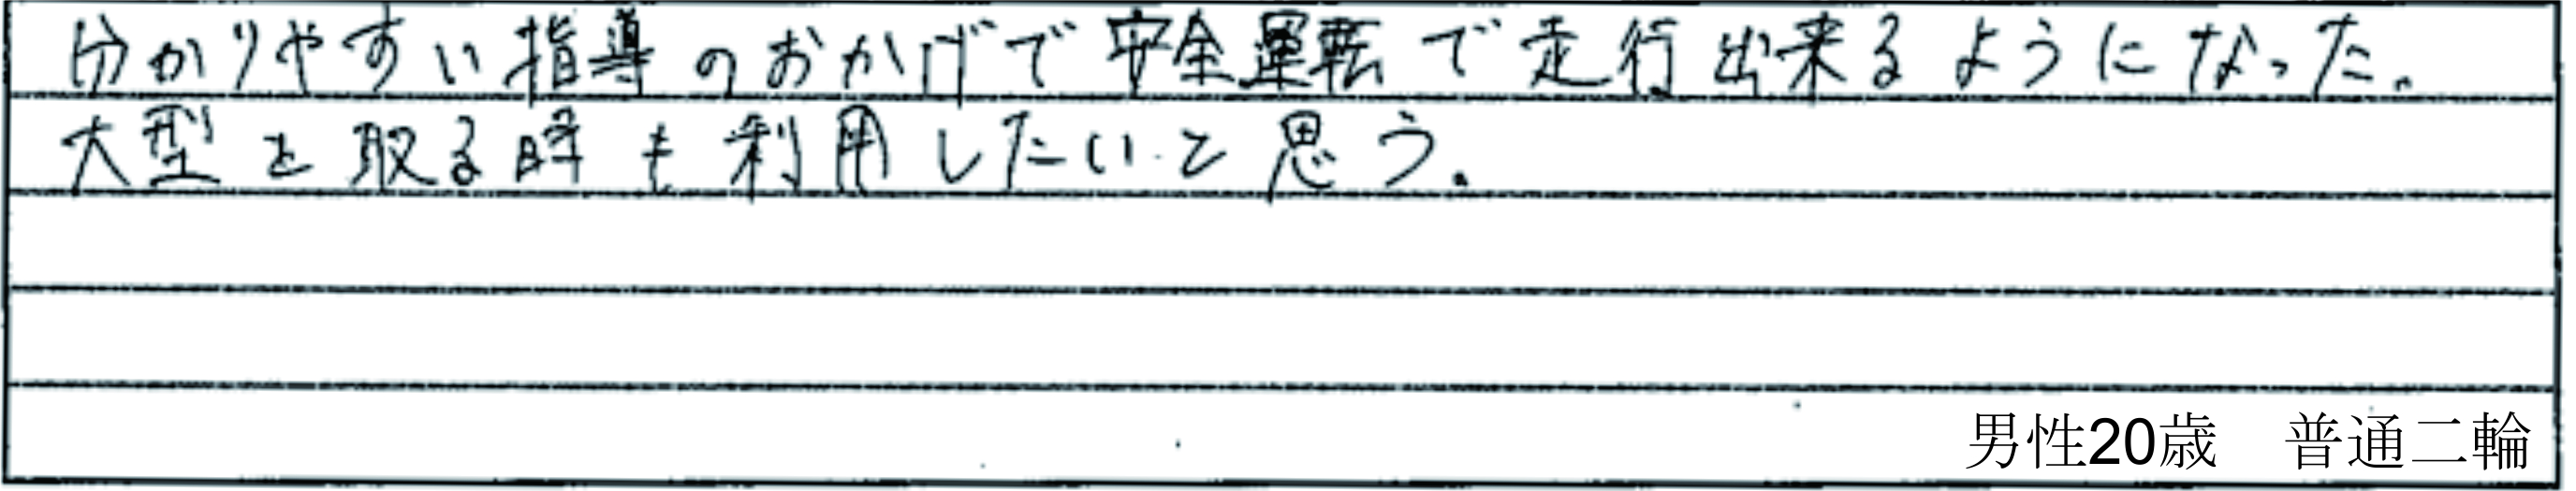 分かりやすい指導のおかげで安全運転で走行出来るようになった.
大型を取る時も利用したいと思う.
男性20歳　普通二輪